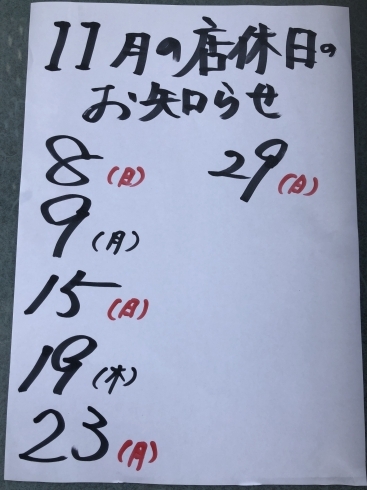 11月の店休日の
お知らせ
8(日)
9(月)
15(日)
19(木)
23(月)
29(日)